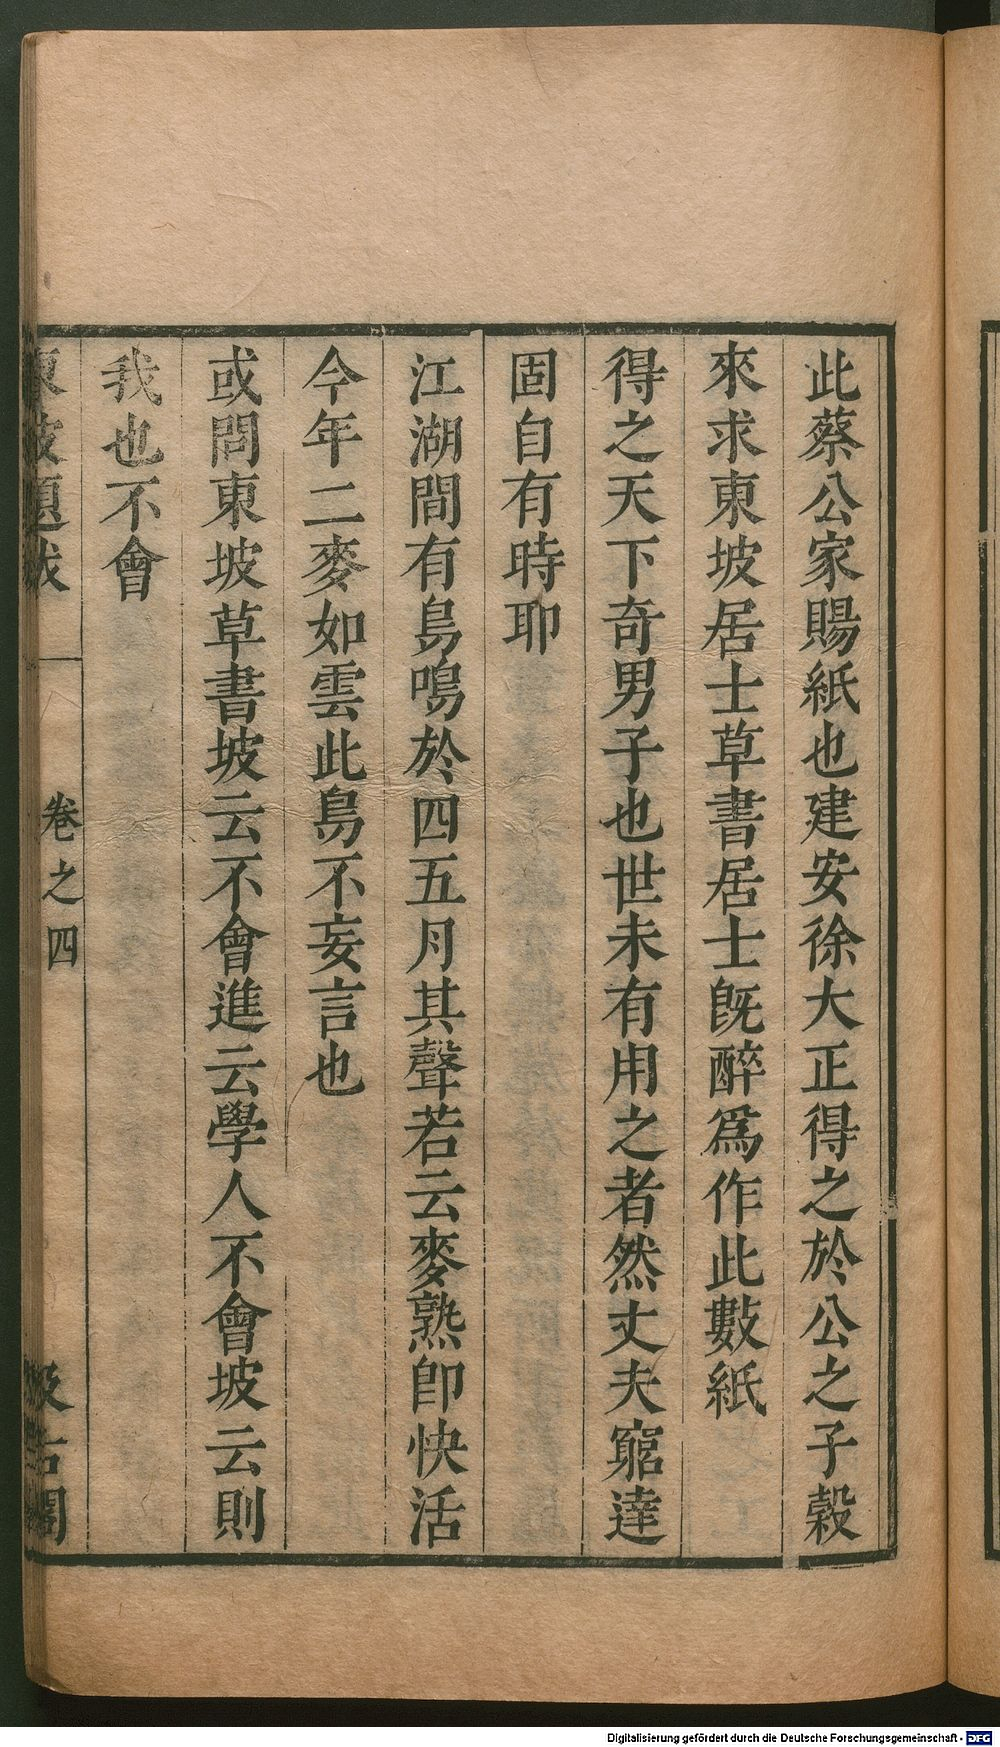 此蔡公家賜紙也建安徐大正得之於公之子穀
來求東坡居士草書居士旣醉爲作此數紙
得之天下奇男子也世未有用之者然丈夫窮達
固自有時耶
江湖間有鳥鳴於四五月其聲若云麥熟卽快活
今年二麥如雲此鳥不妄言也
或問東坡草書坡云不會進云學人不會坡云則
我也不會
東坡題跋
卷之四
汲古閣
Digitalisierung gefördert durch die Deutsche Forschungsgemeinschaft - DFG